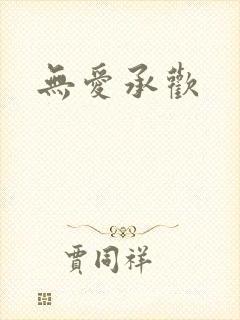 無愛承歡
賈同祥